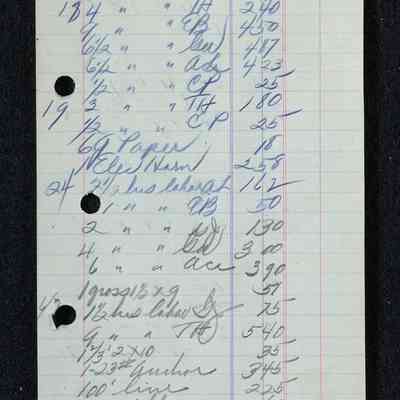 18 4 " " TH 2 40
9 " " EB 4 50
6 1/2 " " 4 87
5 1/2 " " 4 23
1/2 " " CP 25
19 3 " " TH 1 80
1/2 " " CP 25
6 Paper 18
1 Elec Horn 2 58
24 2 1/2 hrs labor 1 62
1 " " EB 50
2 " " 1 30
4 " " 3 00
6 " " Ace 3 90
1 gross 1 1/2 x 9 57
1 1/2 hrs labor 75
9 " " TH 5 40
1-1/3' 2x10 35
1-23# anchor 3 45
100' line 2 25